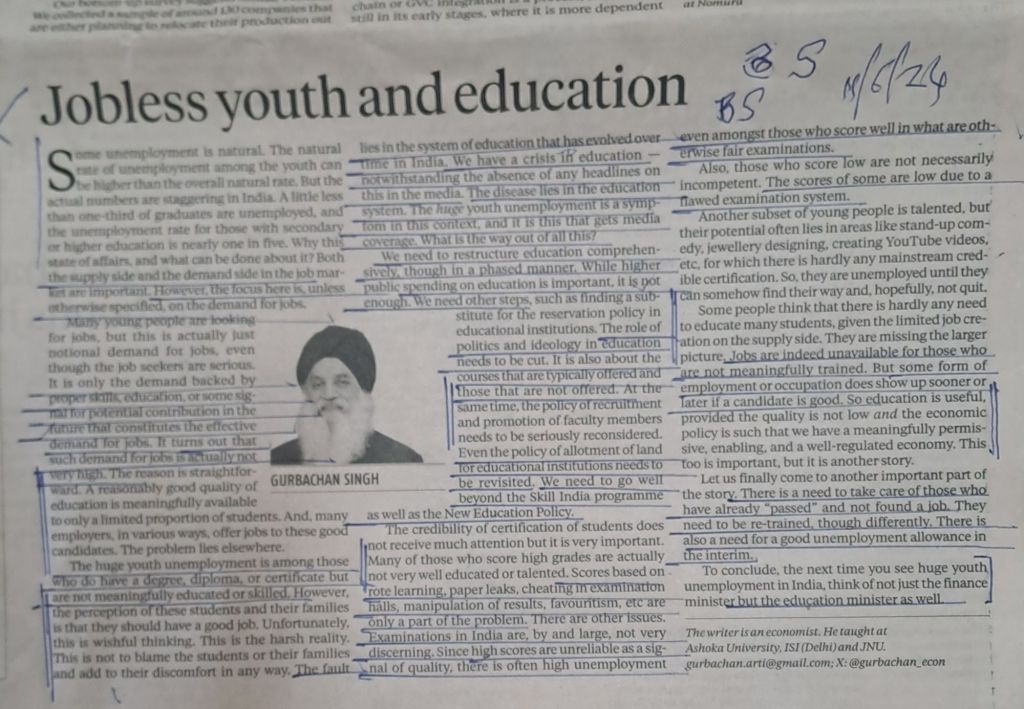 We collected a sample of around 130 companies that
are either planning to relocate their production out
still in its early stages, where it is more dependent
at Nomura
BS
BS
Jobless youth and education
Some unemployment is natural. The natural
rate of unemployment among the youth can
be higher than the overall natural rate. But the
actual numbers are staggering in India. A little less
than one-third of graduates are unemployed, and
the unemployment rate for those with secondary
or higher education is nearly one in five. Why this
state of affairs, and what can be done about it? Both
the supply side and the demand side in the job mar-
ket are important. However, the focus here is, unless
otherwise specified, on the demand for jobs.
Many young people are looking
for jobs, but this is actually just
notional demand for jobs, even
though the job seekers are serious.
It is only the demand backed by
proper skills, education, or some sig-
nal for potential contribution in the
future that constitutes the effective
demand for jobs. It turns out that
such demand for jobs is actually not
very high. The reason is straightfor-
ward. A reasonably good quality of
education is meaningfully available
to only a limited proportion of students. And, many
employers, in various ways, offer jobs to these good
candidates. The problem lies elsewhere.
The huge youth unemployment is among those
who do have a degree, diploma, or certificate but
are not meaningfully educated or skilled. However,
the perception of these students and their families
is that they should have a good job. Unfortunately,
this is wishful thinking. This is the harsh reality.
This is not to blame the students or their families
and add to their discomfort in any way. The fault
GURBACHAN SINGH
lies in the system of education that has evolved over
time in India. We have a crisis in education —
notwithstanding the absence of any headlines on
this in the media. The disease lies in the education
system. The huge youth unemployment is a symp-
tom in this context, and it is this that gets media
coverage. What is the way out of all this?
We need to restructure education comprehen-
sively, though in a phased manner. While higher
public spending on education is important, it is not
enough. We need other steps, such as finding a sub-
stitute for the reservation policy in
educational institutions. The role of
politics and ideology in education
needs to be cut. It is also about the
courses that are typically offered and
those that are not offered. At the
same time, the policy of recruitment
and promotion of faculty members
needs to be seriously reconsidered.
Even the policy of allotment of land
for educational institutions needs to
be revisited. We need to go well
beyond the Skill India programme
as well as the New Education Policy.
The credibility of certification of students does
not receive much attention but it is very important.
Many of those who score high grades are actually
not very well educated or talented. Scores based on
rote learning, paper leaks, cheating in examination
halls, manipulation of results, favouritism, etc are
only a part of the problem. There are other issues.
Examinations in India are, by and large, not very
discerning. Since high scores are unreliable as a sig-
nal of quality, there is often high unemployment
even amongst those who score well in what are oth-
erwise fair examinations.
Also, those who score low are not necessarily
incompetent. The scores of some are low due to a
flawed examination system.
Another subset of young people is talented, but
their potential often lies in areas like stand-up com-
edy, jewellery designing, creating YouTube videos,
etc, for which there is hardly any mainstream cred-
ible certification. So, they are unemployed until they
can somehow find their way and, hopefully, not quit.
Some people think that there is hardly any need
to educate many students, given the limited job cre-
ation on the supply side. They are missing the larger
picture. Jobs are indeed unavailable for those who
are not meaningfully trained. But some form of
employment or occupation does show up sooner or
later if a candidate is good. So education is useful,
provided the quality is not low and the economic
policy is such that we have a meaningfully permis-
sive, enabling, and a well-regulated economy. This
too is important, but it is another story.
Let us finally come to another important part of
the story. There is a need to take care of those who
have already “passed” and not found a job. They
need to be re-trained, though differently. There is
also a need for a good unemployment allowance in
the interim.
To conclude, the next time you see huge youth
unemployment in India, think of not just the finance
minister but the education minister as well.
The writer is an economist. He taught at
Ashoka University, ISI (Delhi) and JNU.
gurbachan.arti@gmail.com; X: @gurbachan_econ